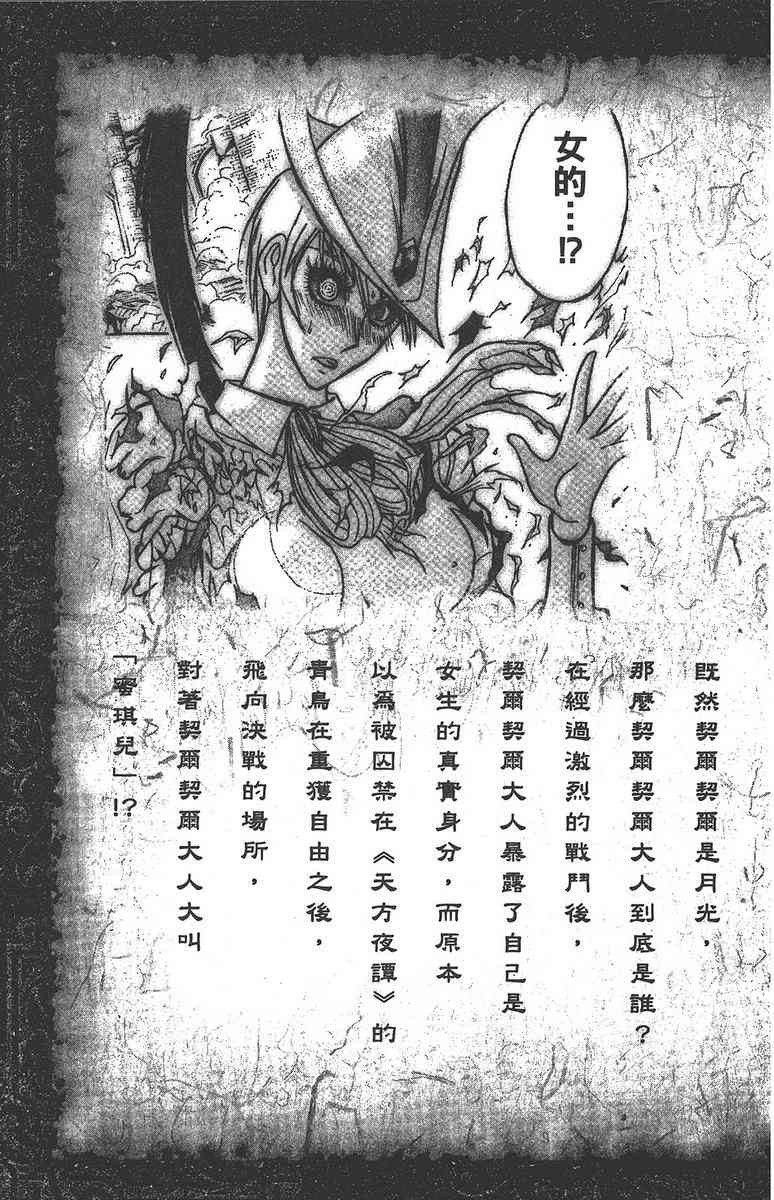 女的…!?
既然契爾契爾是月光，
那麼契爾契爾大人到底是誰？
在經過激烈的戰鬥後，
契爾契爾大人暴露了自己是
女生的真實身分，而原本
以為被囚禁在《天方夜譚》的
青鳥在重獲自由之後，
飛向決戰的場所，
對著契爾契爾大人大叫
「蜜琪兒」!?